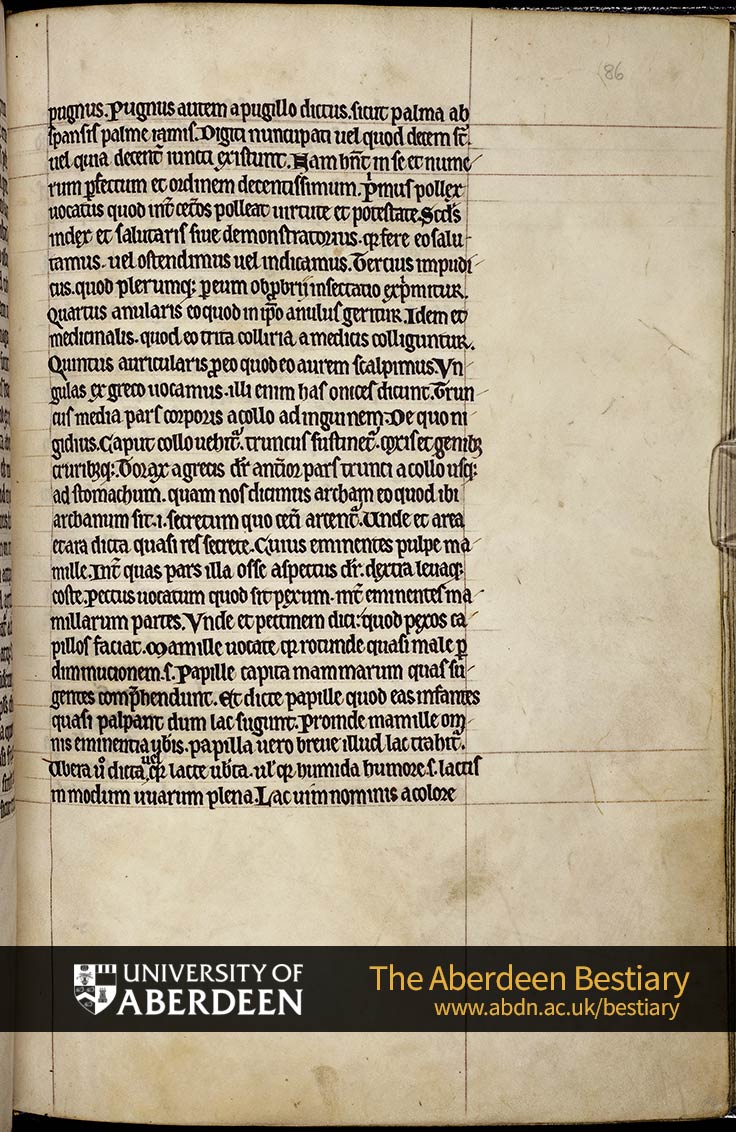 86
pugnus. Pugnus autem a pugillo dictus. sicut palma ab
spansis palme ramis. Digiti nuncupati uel quod decem st̄.
uel quia decent̄ iuncti existunt. Nam hn̄t in se et nume
rum ꝑfectum et ordinem decentissimum. p̄mus pollex
uocatus quod int̄ cet̄os polleat uirtute et potestate. Scd̄s
index et salutaris siue demonstratorius. qꝛ fere eo salu
tamus. uel ostendimus uel indicamus. Tercius impudi
cus. quod plerumq; ꝑ eum obꝓbrii insectatio exp̄mitur.
Quartus anularis eo quod in ip̄o anulus geritur. Idem et
medicinalis. quod eo trita colliria a medicis colliguntur.
Quintus auricularis ꝓ eo quod eo aurem scalpimus. Vn
gulas ex greco uocamus. illi enim has onices dicunt. Trun
cus media pars corporis a collo ad inguinem. De quo ni
gidius. Caput collo uehit᷑. truncus sustinet᷑. coxis et genibꝫ
cruribꝫq;. Torax a grecis dr̄ anc̄ior pars trunci a collo usq;
ad stomachum. quam nos dicimus archam eo quod ibi
archanum sit. .i. secretum quo cet̄i arcent᷑. Unde et area
et ara dicta quasi res secrete. Cuius eminentes pulpe ma
mille. Int̄ quas pars illa osse aspectus dr̄. dextra leuaq;
coste. Pectus uocatum quod sit pexum. int̄ eminentes ma
millarum partes. Vnde et pectinem dici: quod pexos ca
pillos faciat. Mamille uocate. qꝛ rotunde quasi male ꝑ
diminucionem .s. Papille capita mammarum quas su
gentes comp̄hendunt. Et dicte papille quod eas infantes
quasi palpant dum lac sugunt. Proinde mamille om
nis eminentia ub̄is. papilla uero breue illud lac trahit᷑.
Vbera u̇o dicta, uel qꝛ lacte ub̄ta. ul̄ qꝛ humida humore .s. lactis
in modum uuarum plena. Lac uim nominis a colore
UNIVERSITY OF
ABERDEEN
The Aberdeen Bestiary
www.abdn.ac.uk/bestiary